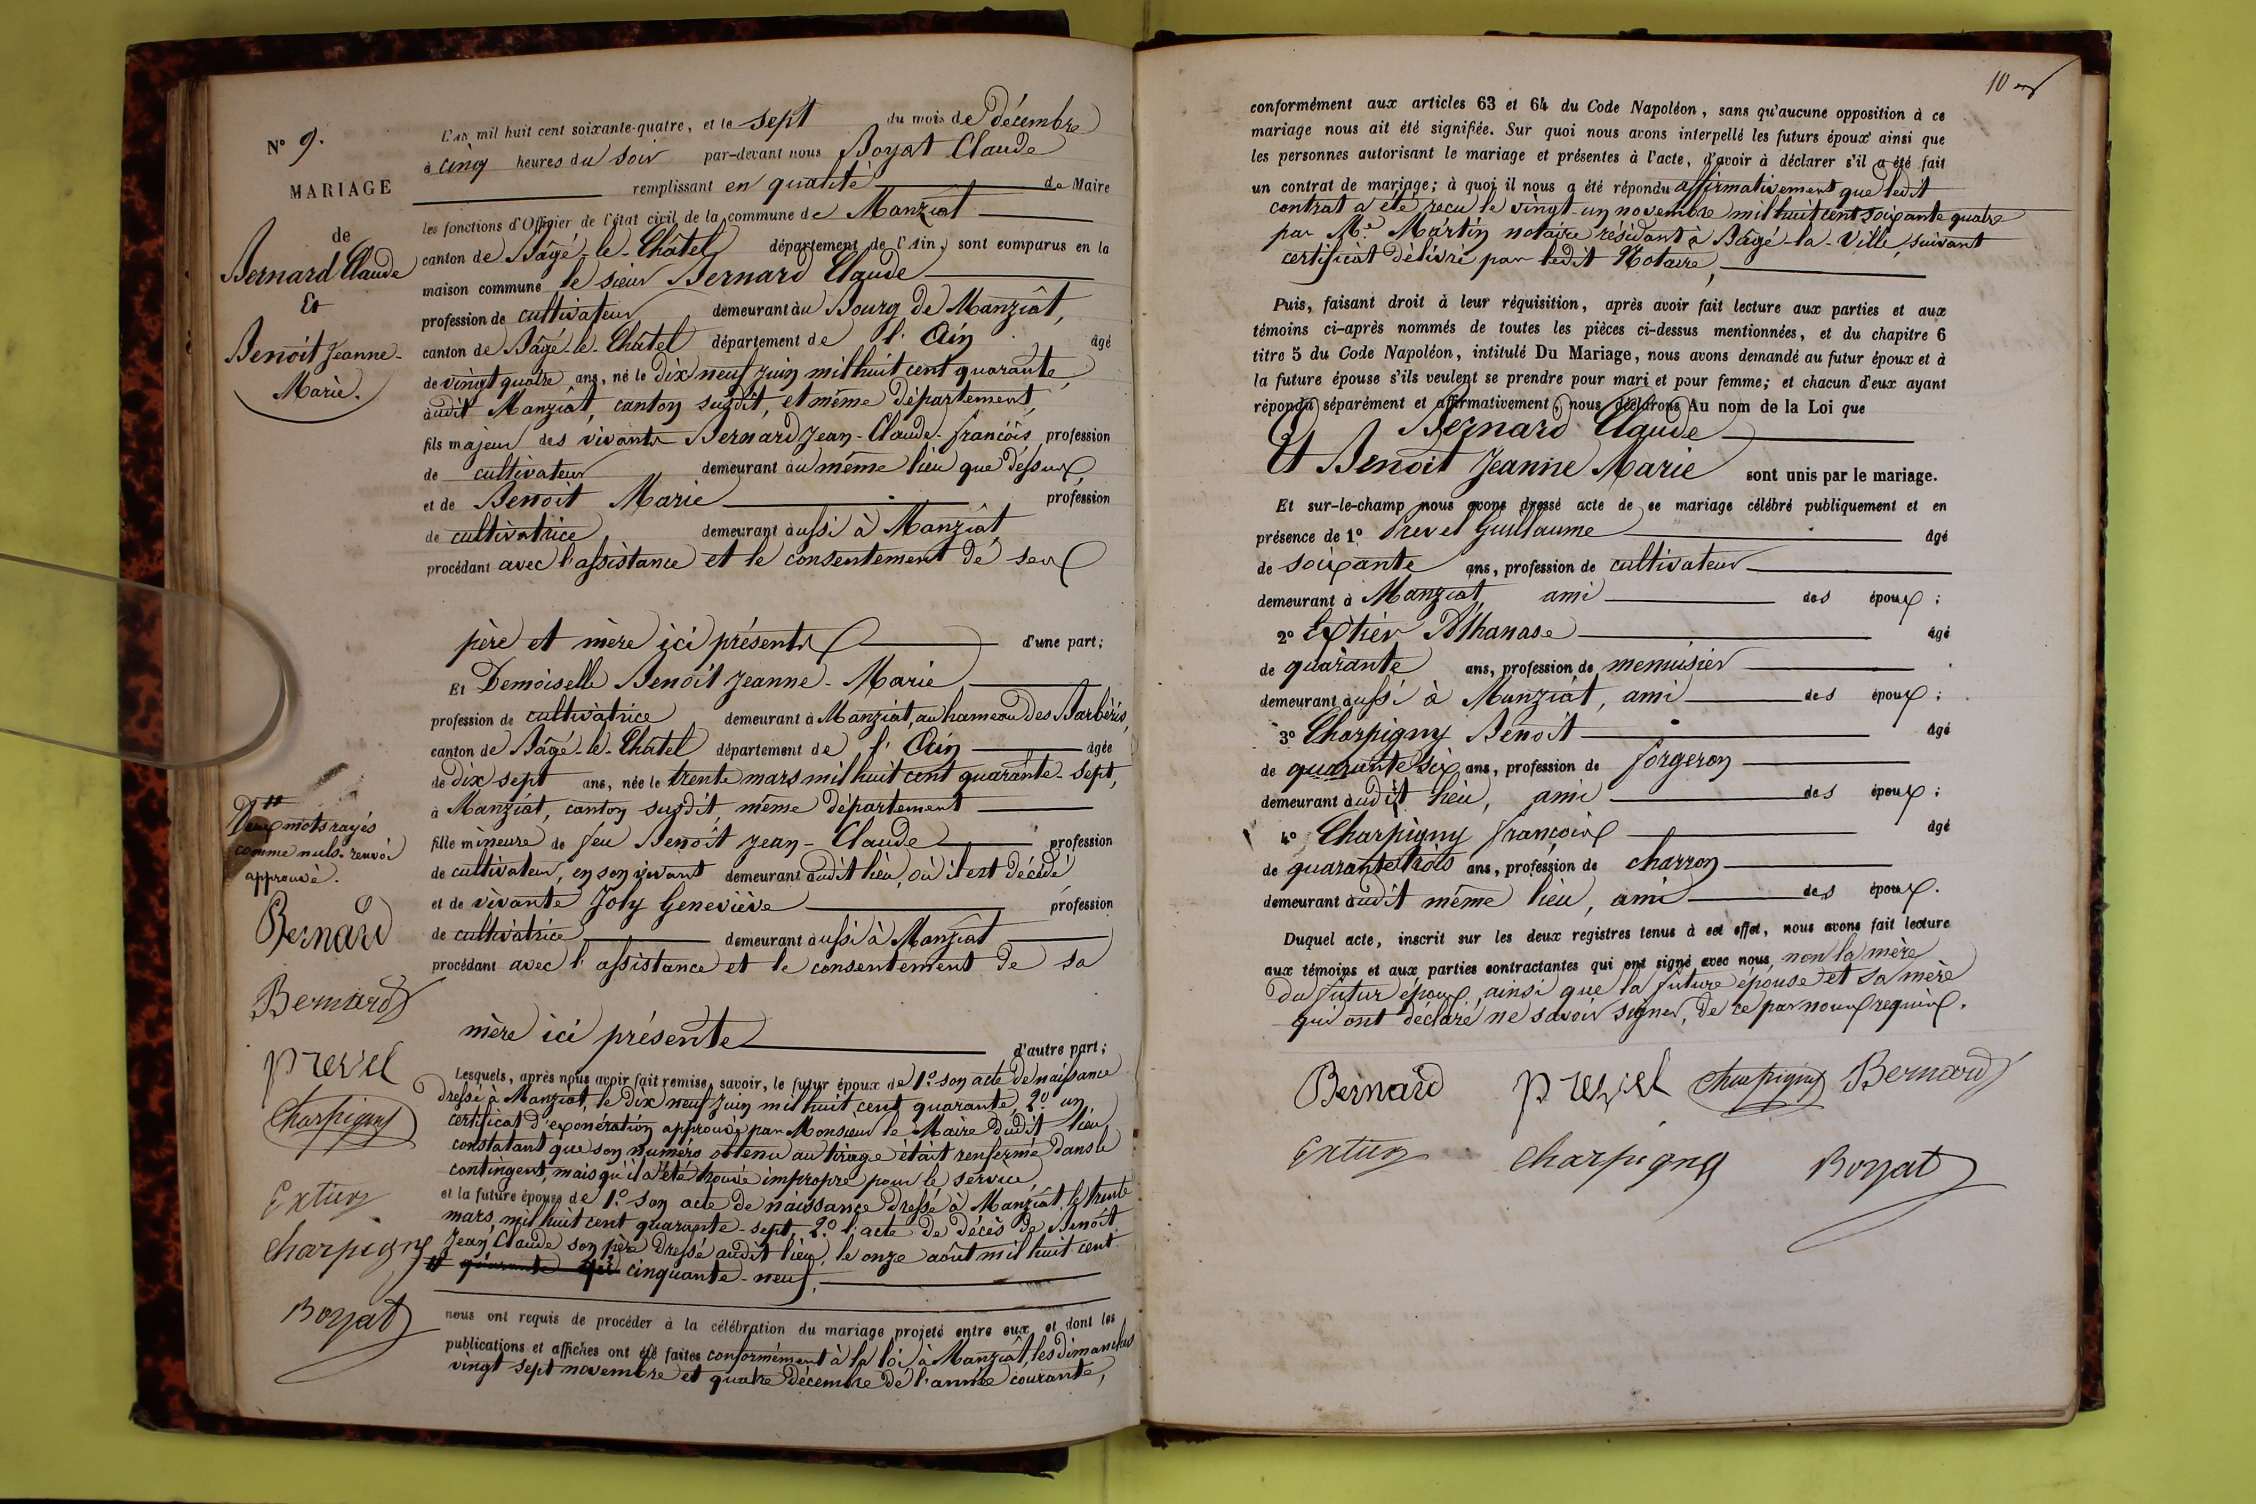 N° 9.
MARIAGE
de
Bernard Claude
Et
Benoit Jeanne-
Marie.
L'an mil huit cent soixante-quatre, et le sept du mois de décembre
à cinq heures du soir par-devant nous Boyat Claude
remplissant en qualité de Maire
les fonctions d'Officier de l'état civil de la commune de Manziat
canton de Bâgé-le-Châtel département de l'Ain, sont comparus en la
maison commune le sieur Bernard Claude
profession de cultivateur demeurant au Bourg de Manziât,
canton de Bâgé-le-Châtel département de l'Ain âgé
de vingt quatre ans, né le dix neuf juin mil huit cent quarante,
audit Manziât, canton susdit, et même département,
fils majeur des vivants Bernard Jean-Claude-françois profession
de cultivateur demeurant au même lieu que dessus,
et de Benoit Marie profession
de cultivatrice demeurant aussi à Manziât,
procédant avec l'assistance et le consentement de ses
père et mère ici présents d'une part;
Et Demoiselle Benoit Jeanne-Marie
profession de cultivatrice demeurant à Manziat, au hameau des Barbéris,
canton de Bâgé-le-Châtel département de l'Ain âgée
de dix sept ans, née le trente mars mil huit cent quarante-sept,
à Manziat, canton susdit, même département
fille mineure de feu Benoit Jean-Claude profession
de cultivateur, en son vivant demeurant audit lieu, où il est décédé
et de vivante Joly Geneviève profession
de cultivatrice demeurant aussi à Manziat
procédant avec l'assistance et le consentement de sa
mère ici présente d'autre part;
Lesquels, après nous avoir fait remise, savoir, le futur époux de 1° son acte de naissance
dressé à Manziat, le dix neuf juin mil huit cent quarante, 2° un
certificat d'exonération approuvé par Monsieur le Maire dudit lieu
constatant que son numéro obtenu au tirage était renfermé dans le
contingent, mais qu'il a été trouvé impropre pour le service,
et la future épouse de 1° son acte de naissance dressé à Manziât, le trente
mars, mil huit cent quarante-sept, 2° l'acte de décès de Benoit
Jean Claude son père dressé audit lieu, le onze août mil huit cent
cinquante-neuf.
nous ont requis de procéder à la célébration du mariage projeté entre eux et dont les
publications et affiches ont été faites conformément à la loi à Manziât, les dimanches
vingt sept novembre et quatre décembre de l'année courante,
Deux mots rayés
comme nuls. renvoi
approuvé.
Bernard
Bernard
prevel
Charpigny
Extier
Charpigny
Boyat
10
conformément aux articles 63 et 64 du Code Napoléon, sans qu'aucune opposition à ce
mariage nous ait été signifiée. Sur quoi nous avons interpellé les futurs époux ainsi que
les personnes autorisant le mariage et présentes à l'acte, d'avoir à déclarer s'il a été fait
un contrat de mariage; à quoi il nous a été répondu affirmativement que ledit
contrat a été reçu le vingt-un novembre mil huit cent soixante quatre
par Me Martin notaire résidant à Bâgé-la-Ville, suivant
certificat délivré par ledit Notaire,
Puis, faisant droit à leur réquisition, après avoir fait lecture aux parties et aux
témoins ci-après nommés de toutes les pièces ci-dessus mentionnées, et du chapitre 6
titre 5 du Code Napoléon, intitulé Du Mariage, nous avons demandé au futur époux et à
la future épouse s'ils veulent se prendre pour mari et pour femme; et chacun d'eux ayant
répondu séparément et affirmativement, nous déclarons Au nom de la Loi que
Bernard Claude
Et Benoit Jeanne Marie sont unis par le mariage.
Et sur-le-champ nous avons dressé acte de ce mariage célébré publiquement et en
présence de 1° Prevel Guillaume âgé
de soixante ans, profession de cultivateur
demeurant à Manziat, ami des époux;
2° Extier Athanase âgé
de quarante ans, profession de menuisier
demeurant aussi à Manziat, ami des époux;
3° Charpigny Benoit âgé
de quarante six ans, profession de forgeron
demeurant audit lieu, ami des époux;
4° Charpigny françois âgé
de quarante trois ans, profession de charron
demeurant audit même lieu, ami des époux.
Duquel acte, inscrit sur les deux registres tenus à cet effet, nous avons fait lecture
aux témoins et aux parties contractantes qui ont signé avec nous, non la mère
du futur époux, ainsi que la future épouse et sa mère
qui ont déclaré ne savoir signer, de ce par nous requis.
Bernard prevel Charpigny Bernard
Extier Charpigny Boyat